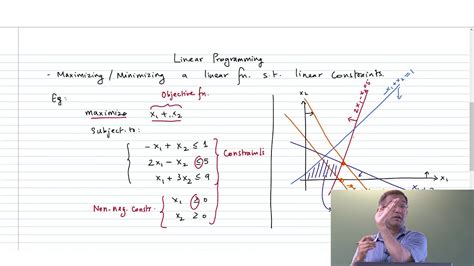 Linear Programming
- Maximizing / Minimizing a linear fn. s.t. linear Constraints.
Eg:
Objective fn.
maximize x₁ + x₂
Subject to:
-x₁ + x₂ ≤ 1
2x₁ - x₂ ≤ 5
x₁ + 3x₂ ≤ 9
Constraints
Non-neg. Constr.
x₁ ≥ 0
x₂ ≥ 0
x₂
2x₁ - x₂ = 5
-x₁ + x₂ = 1
x₁